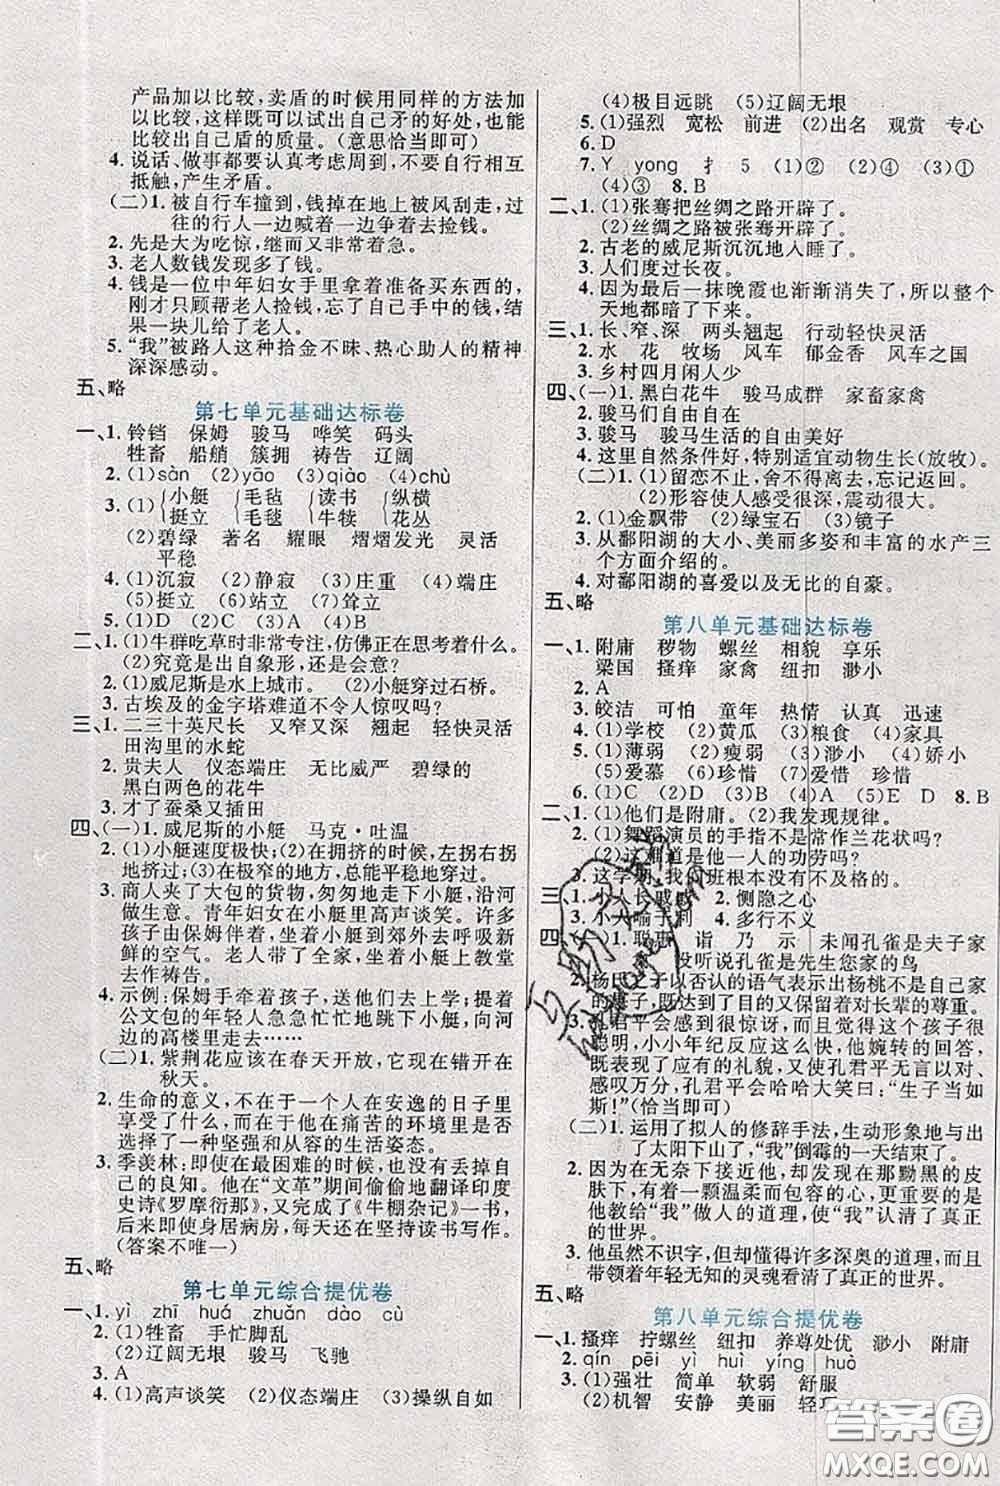 产品加以比较,卖盾的时候用同样的方法加
以比较,这样既可以试出自己矛的好处,也能
比较出自己盾的质量。(意思恰当即可)
4. 说话、做事都要认真考虑周到,不要自行相互
抵触,产生矛盾。
(二)1. 被自行车撞到,钱掉在地上被风刮走,过
往的行人一边喊着一边争着捡钱。
2. 先是大为吃惊,继而又非常着急。
3. 老人数钱发现多了钱。
4. 钱是一位中年妇女手里拿着准备买东西的,
刚才只顾帮老人捡钱,忘了自己手中的钱,结
果一块儿给了老人。
5. “我”被路人这种拾金不昧、热心助人的精神
深深感动。
五、略
第七单元基础达标卷
一、1. 铃铛 保姆 骏马 哗笑 码头
牲畜 船艄 簇拥 祷告 辽阔
2. (1)sàn (2)yāo (3)qiào (4)chù
3. (1){小艇 {毛毯 {读书 {纵横
挺立 毛毡 牛犊 花丛
(2)碧绿 著名 耀眼 熠熠发光 灵活
平稳
4. (1)沉寂 (2)静寂 (3)庄重 (4)端庄
(5)挺立 (6)站立 (7)耸立
5. (1)D (2)C (3)A (4)B
二、1. (1)牛群吃草时非常专注,仿佛正在思考着什么。
(2)究竟是出自象形,还是会意?
2. (1)威尼斯是水上城市。 (2)小艇穿过石桥。
3. 古埃及的金字塔难道不令人惊叹吗?
三、1. 二三十英尺长 又窄又深 翘起 轻快灵活
田沟里的水蛇
2. 贵夫人 仪态端庄 无比威严 碧绿的
黑白两色的花牛
3. 才了蚕桑又插田
四、(一)1. 威尼斯的小艇 马克·吐温
2. (1)小艇速度极快;(2)在拥挤的时候,左拐右拐
地挤过;(3)在极窄的地方,总能平稳地穿过。
3. 商人夹了大包的货物,匆匆地走下小艇,沿河
做生意。青年妇女在小艇里高声谈笑。许多
孩子由保姆伴着,坐着小艇到郊外去呼吸新
鲜的空气。老人带了全家,坐着小艇上教堂
去作祷告。
4. 示例:保姆手牵着孩子,送他们去上学;提着
公文包的年轻人急急忙忙地跳下小艇,向河
边的高楼里走去……
(二)1. 紫荆花应该在春天开放,它现在错开在
秋天。
2. 生命的意义,不在于一个人在安逸的日子里
享受了什么,而在于他在痛苦的环境里是否
选择了一种坚强和从容的生活姿态。
3. 季羡林:即使在最困难的时候,也没丢掉自
己的良知。他在“文革”期间偷偷地翻译印度
史诗《罗摩衍那》,又完成了《牛棚杂记》一书,
后来即使身居病房,每天还在坚持读书写作。
(答案不唯一)
五、略
第七单元综合提优卷
一、1. yì zhī huá zhuǎn dào cù
2. (1)牲畜 手忙脚乱
(2)辽阔无垠 骏马 飞驰
3. A
4. (1)高声谈笑 (2)仪态端庄 (3)操纵自如
(4)极目远眺 (5)辽阔无垠
5. (1)强烈 宽松 前进 (2)出名 观赏 专心
6. D
7. Y yong 扌 5 (1)② (2)④ (3)①
(4)③ 8. B
二、1. (1)张骞把丝绸之路开辟了。
(2)丝绸之路被张骞开辟了。
2. 古老的威尼斯沉沉地入睡了。
3. 人们度过长夜。
4. 因为最后一抹晚霞也渐渐消失了,所以整个
天地都暗了下来。
三、1. 长、窄、深 两头翘起 行动轻快灵活
2. 水 花 牧场 风车 郁金香 风车之国
3. 乡村四月闲人少
四、(一)1. 黑白花牛 骏马成群 家畜家禽
2. 骏马们自由自在
3. 骏马 骏马生活的自由美好
4. 这里自然条件好,特别适宜动物生长(放牧)。
(二)1. (1)留恋不止,舍不得离去,忘记返回。
(2)形容使人感受很深,震动很大。
2. (1)金飘带 (2)绿宝石 (3)镜子
3. 从鄱阳湖的大小、美丽多姿和丰富的水产三
个方面介绍的。
4. 对鄱阳湖的喜爱以及无比的自豪。
五、略
第八单元基础达标卷
一、1. 附庸 秽物 螺丝 相貌 享乐
梁国 搔痒 家禽 纽扣 渺小
2. A
3. 皎洁 可怕 童年 热情 认真 迅速
4. (1)学校 (2)黄瓜 (3)粮食 (4)家具
5. (1)薄弱 (2)瘦弱 (3)渺小 (4)娇小
(5)爱慕 (6)珍惜 (7)爱惜 珍惜
6. (1)C (2)D (3)B (4)A (5)E D 8. B
二、1. (1)他们是附庸。(2)我发现规律。
2. (1)舞蹈演员的手指不是常作兰花状吗?
(2)这难道是他一人的功劳吗?
3. 这学期,我们班根本没有不及格的。
三、1. 小人长戚戚 2. 恻隐之心
3. 小人喻于利 4. 多行不义
四、(一)1. 聪惠 诣 乃 示 未闻孔雀是夫子家
没听说孔雀是先生您家的鸟
2. 杨氏之子以否认的语气表示出杨桃不是自己家
的果子,既达到了目的又保留着对长辈的尊重。
3. 孔君平会感到很惊讶,而且感叹这个孩子很
聪明,小小年纪反应这么快,他婉转的回答,
既表现了应有的礼貌,又让孔君平无言以对、
感叹万分,孔君平会哈哈大笑曰:“生子当如
斯!”(恰当即可)
(二)1. 运用了拟人的修辞手法,生动形象地写出
了太阳下山了,“我”倒霉的一天结束了。
2. 因为在无奈下接近他,却发现在那黝黑的皮
肤下,有着一颗温柔而包容的心,更重要的是
他教给“我”做人的道理,使“我”认清了真正
的世界。
3. 他虽然不识字,但却懂得许多深奥的道理,而且
带领着年轻无知的灵魂看清了真正的世界。
五、略
第八单元综合提优卷
一、1. 搔痒 拧螺丝 纽扣 养尊处优 渺小 附庸
2. qín pēi yì huì yíng huò
3. (1)强壮 简单 软弱 舒服
(2)机智 安静 美丽 轻巧
答案圈
MXQE.COM